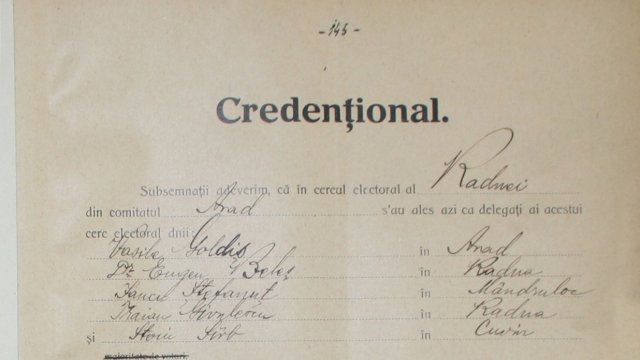 -145-
Credențional.
Subsemnații adeverim, că în cercul electoral al Radnei
din comitatul Arad s'au ales azi ca delegați ai acestui
cerc electoral dnii:
Vasile Goldiș în Arad
Dr Eugen Beleș în Radna
Iancu Ștefănuț în Mândruloc
Traian în Radna
și Stoiu Sîrb în Cuvin
majoritate de voturi.